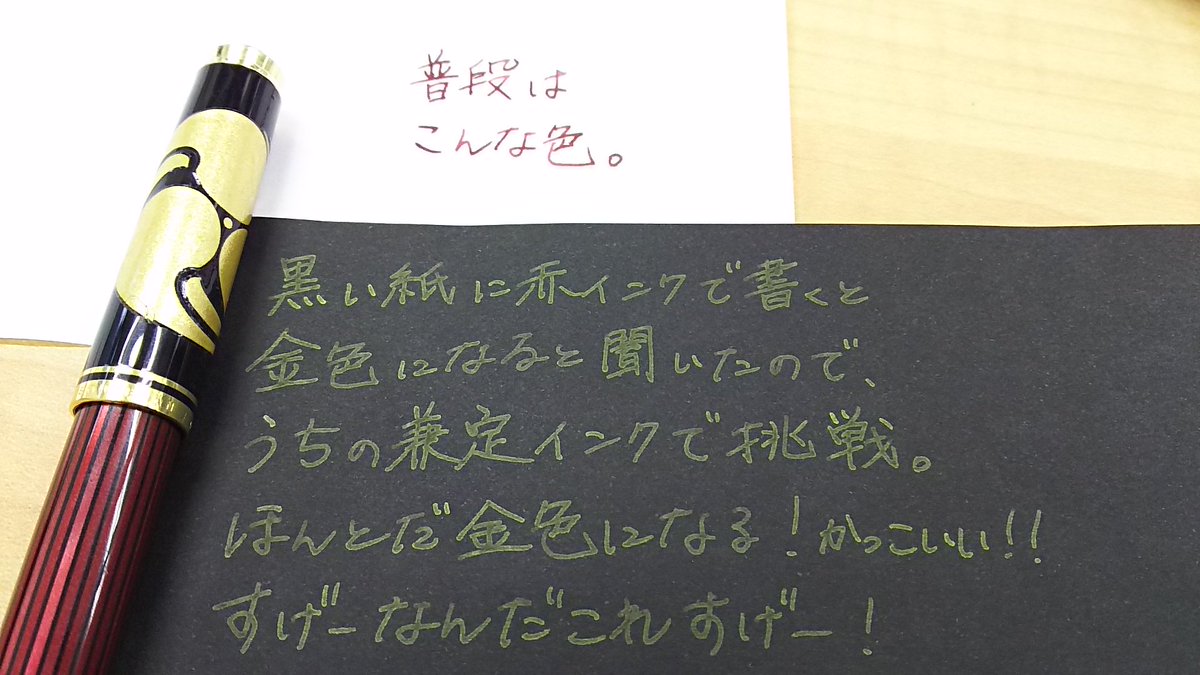 普段は
こんな色。
黒い紙に赤インクで書くと
金色になると聞いたので、
うちの兼定インクで挑戦。
ほんとだ金色になる！かっこいい!!
すげーなんだこれすげー！